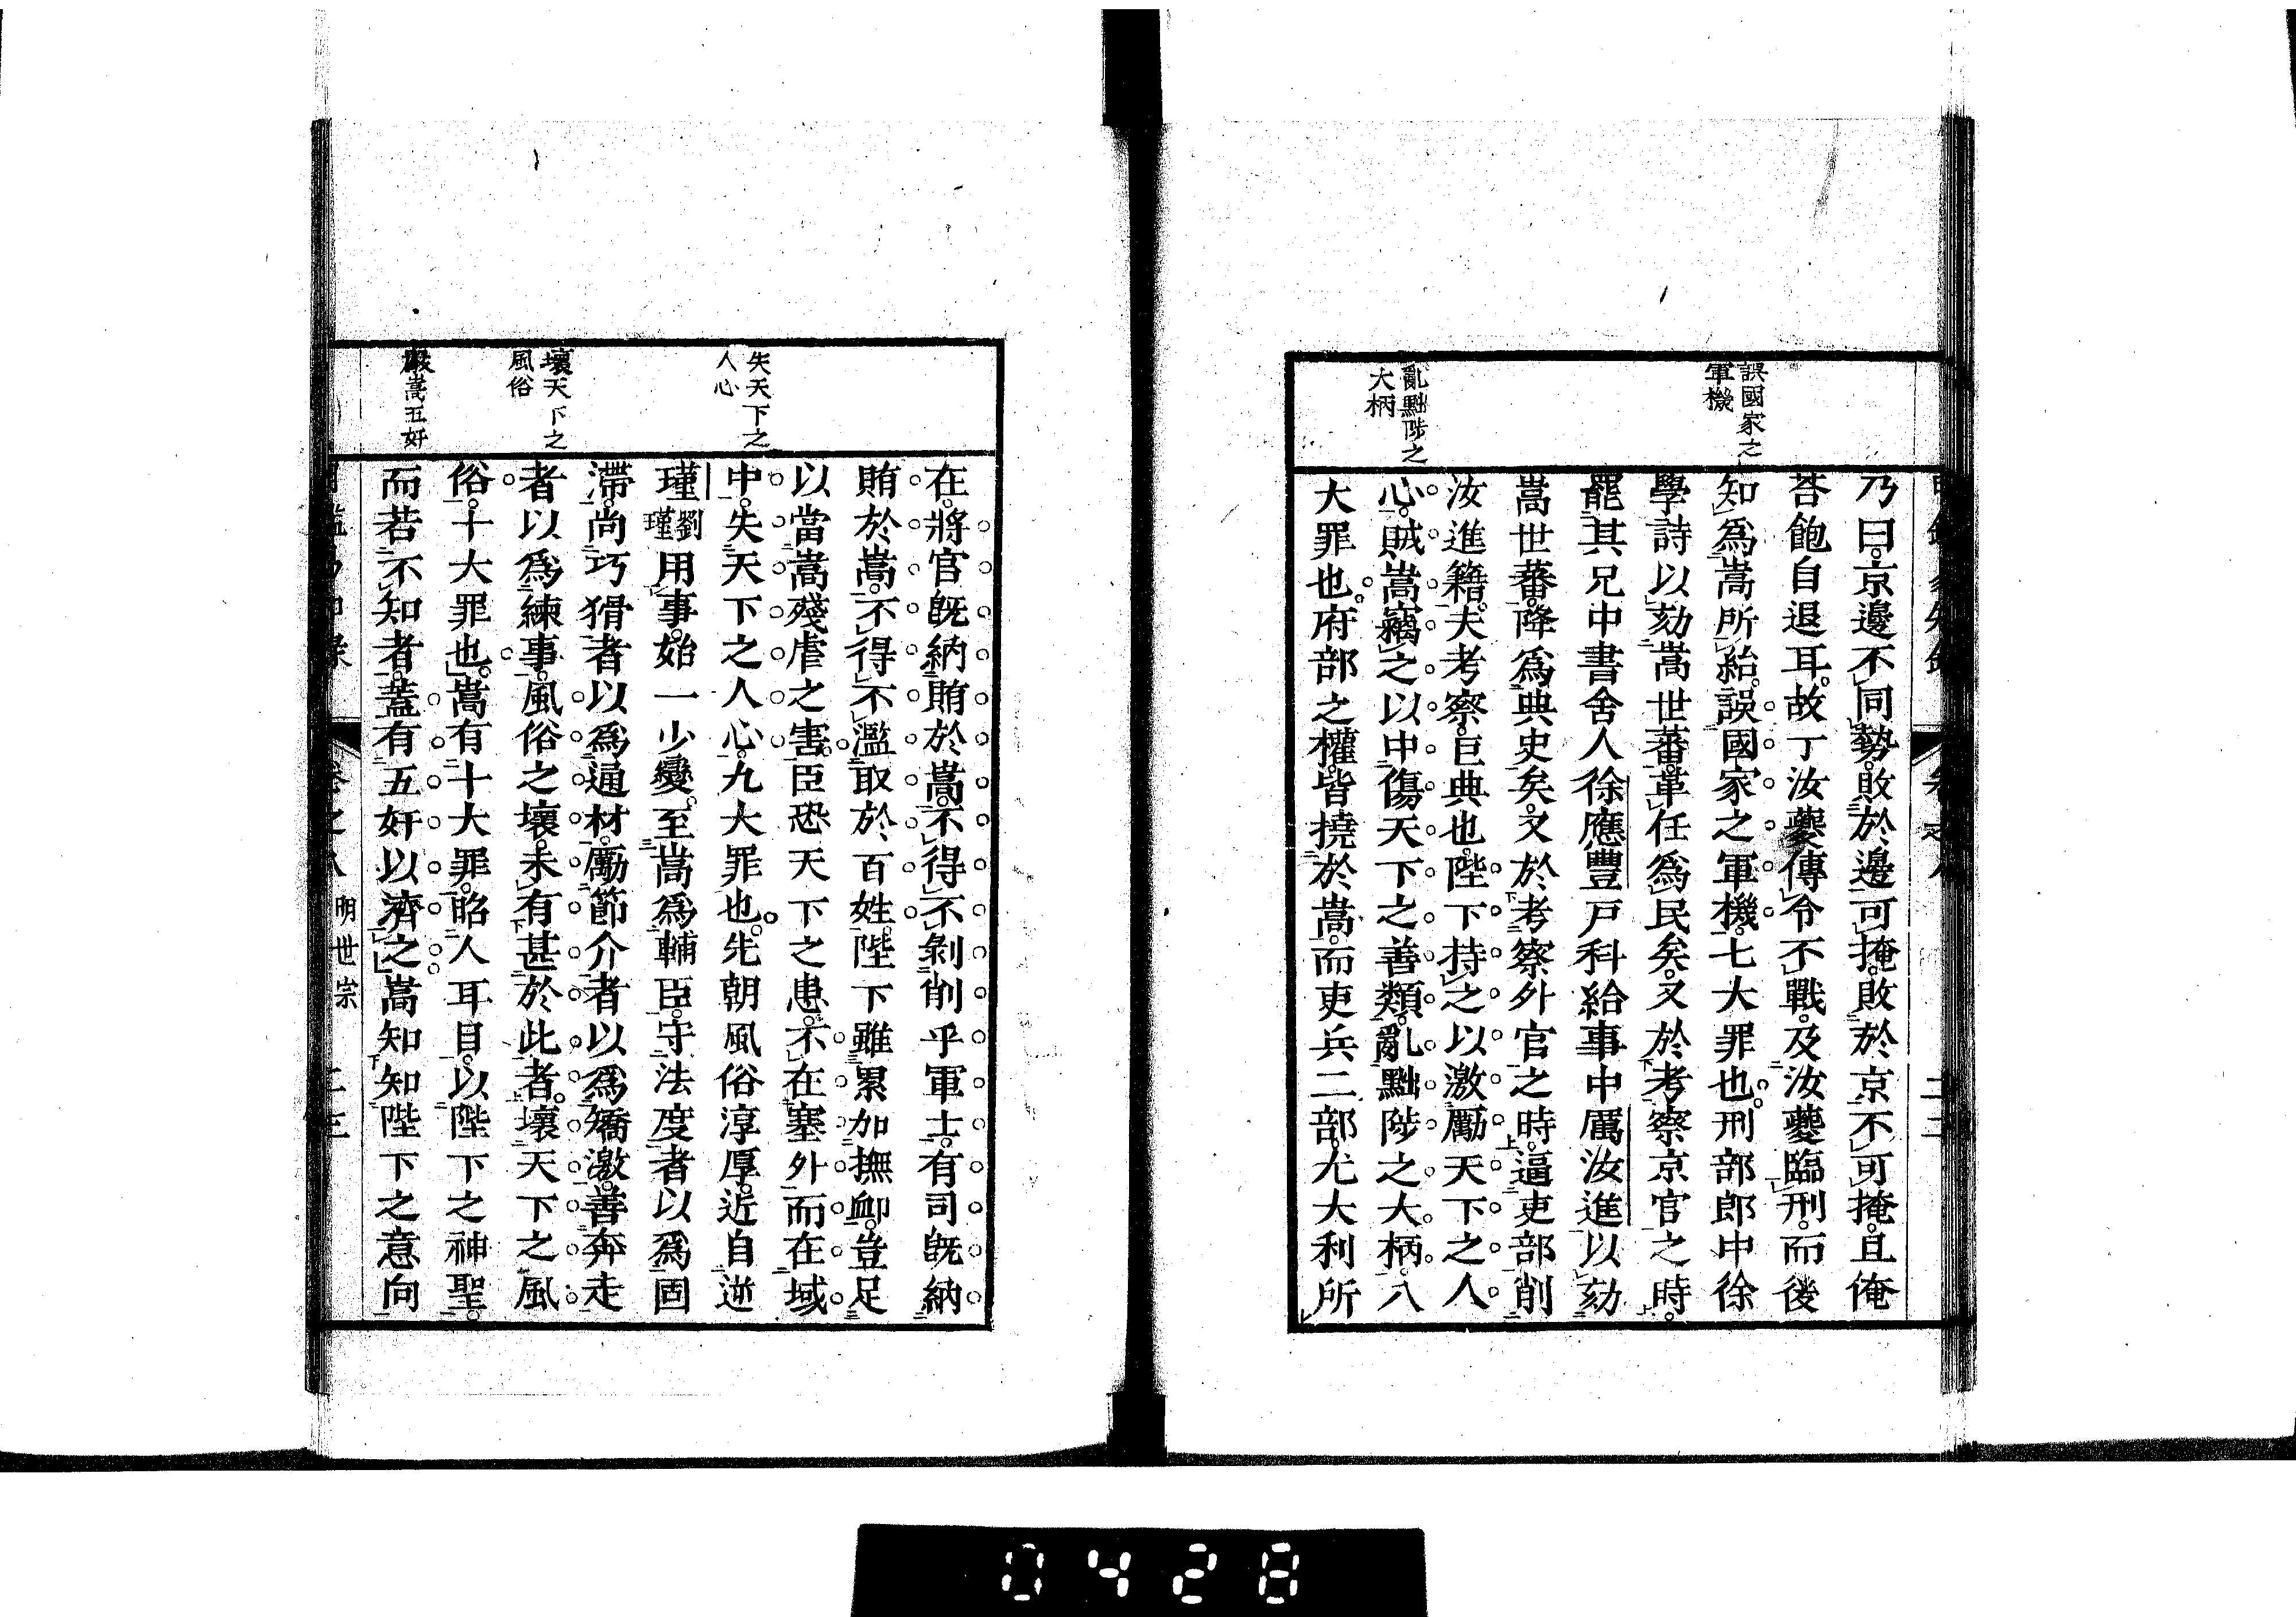 誤國家之
軍機
亂黜陟之
大柄
乃曰京邊不同勢敗於邊可掩敗於京不可掩且俺
荅飽自退耳故丁汝夔傳令不戰及汝夔臨刑而後
知爲嵩所紿誤國家之軍機七大罪也刑部郎中徐
學詩以劾嵩世蕃革任爲民矣又於考察京官之時
罷其兄中書舍人徐應豐戸科給事中厲汝進以劾
嵩世蕃降爲典史矣又於考察外官之時逼吏部削
汝進籍夫考察巨典也陛下持之以激勵天下之人
心賊嵩竊之以中傷天下之善類亂黜陟之大柄八
大罪也府部之權皆撓於嵩而吏兵二部尤大利所
失天下之
人心
壞天下之
風俗
嚴嵩五奸
在將官既納賄於嵩不得不剝削乎軍士有司既納
賄於嵩不得不濫取於百姓陛下雖累加撫䘏豈足
以當嵩殘虐之害臣恐天下之患不在塞外而在域
中失天下之人心九大罪也先朝風俗淳厚近自逆
瑾劉瑾用事始一少變至嵩爲輔臣守法度者以爲固
滯尚巧猾者以爲通材勵節介者以爲矯激善奔走
者以爲練事風俗之壞未有甚於此者壞天下之風
俗十大罪也嵩有十大罪昭人耳目以陛下之神聖
而若不知者蓋有五奸以濟之嵩知知陛下之意向
卷之八 明世宗 二三
0428